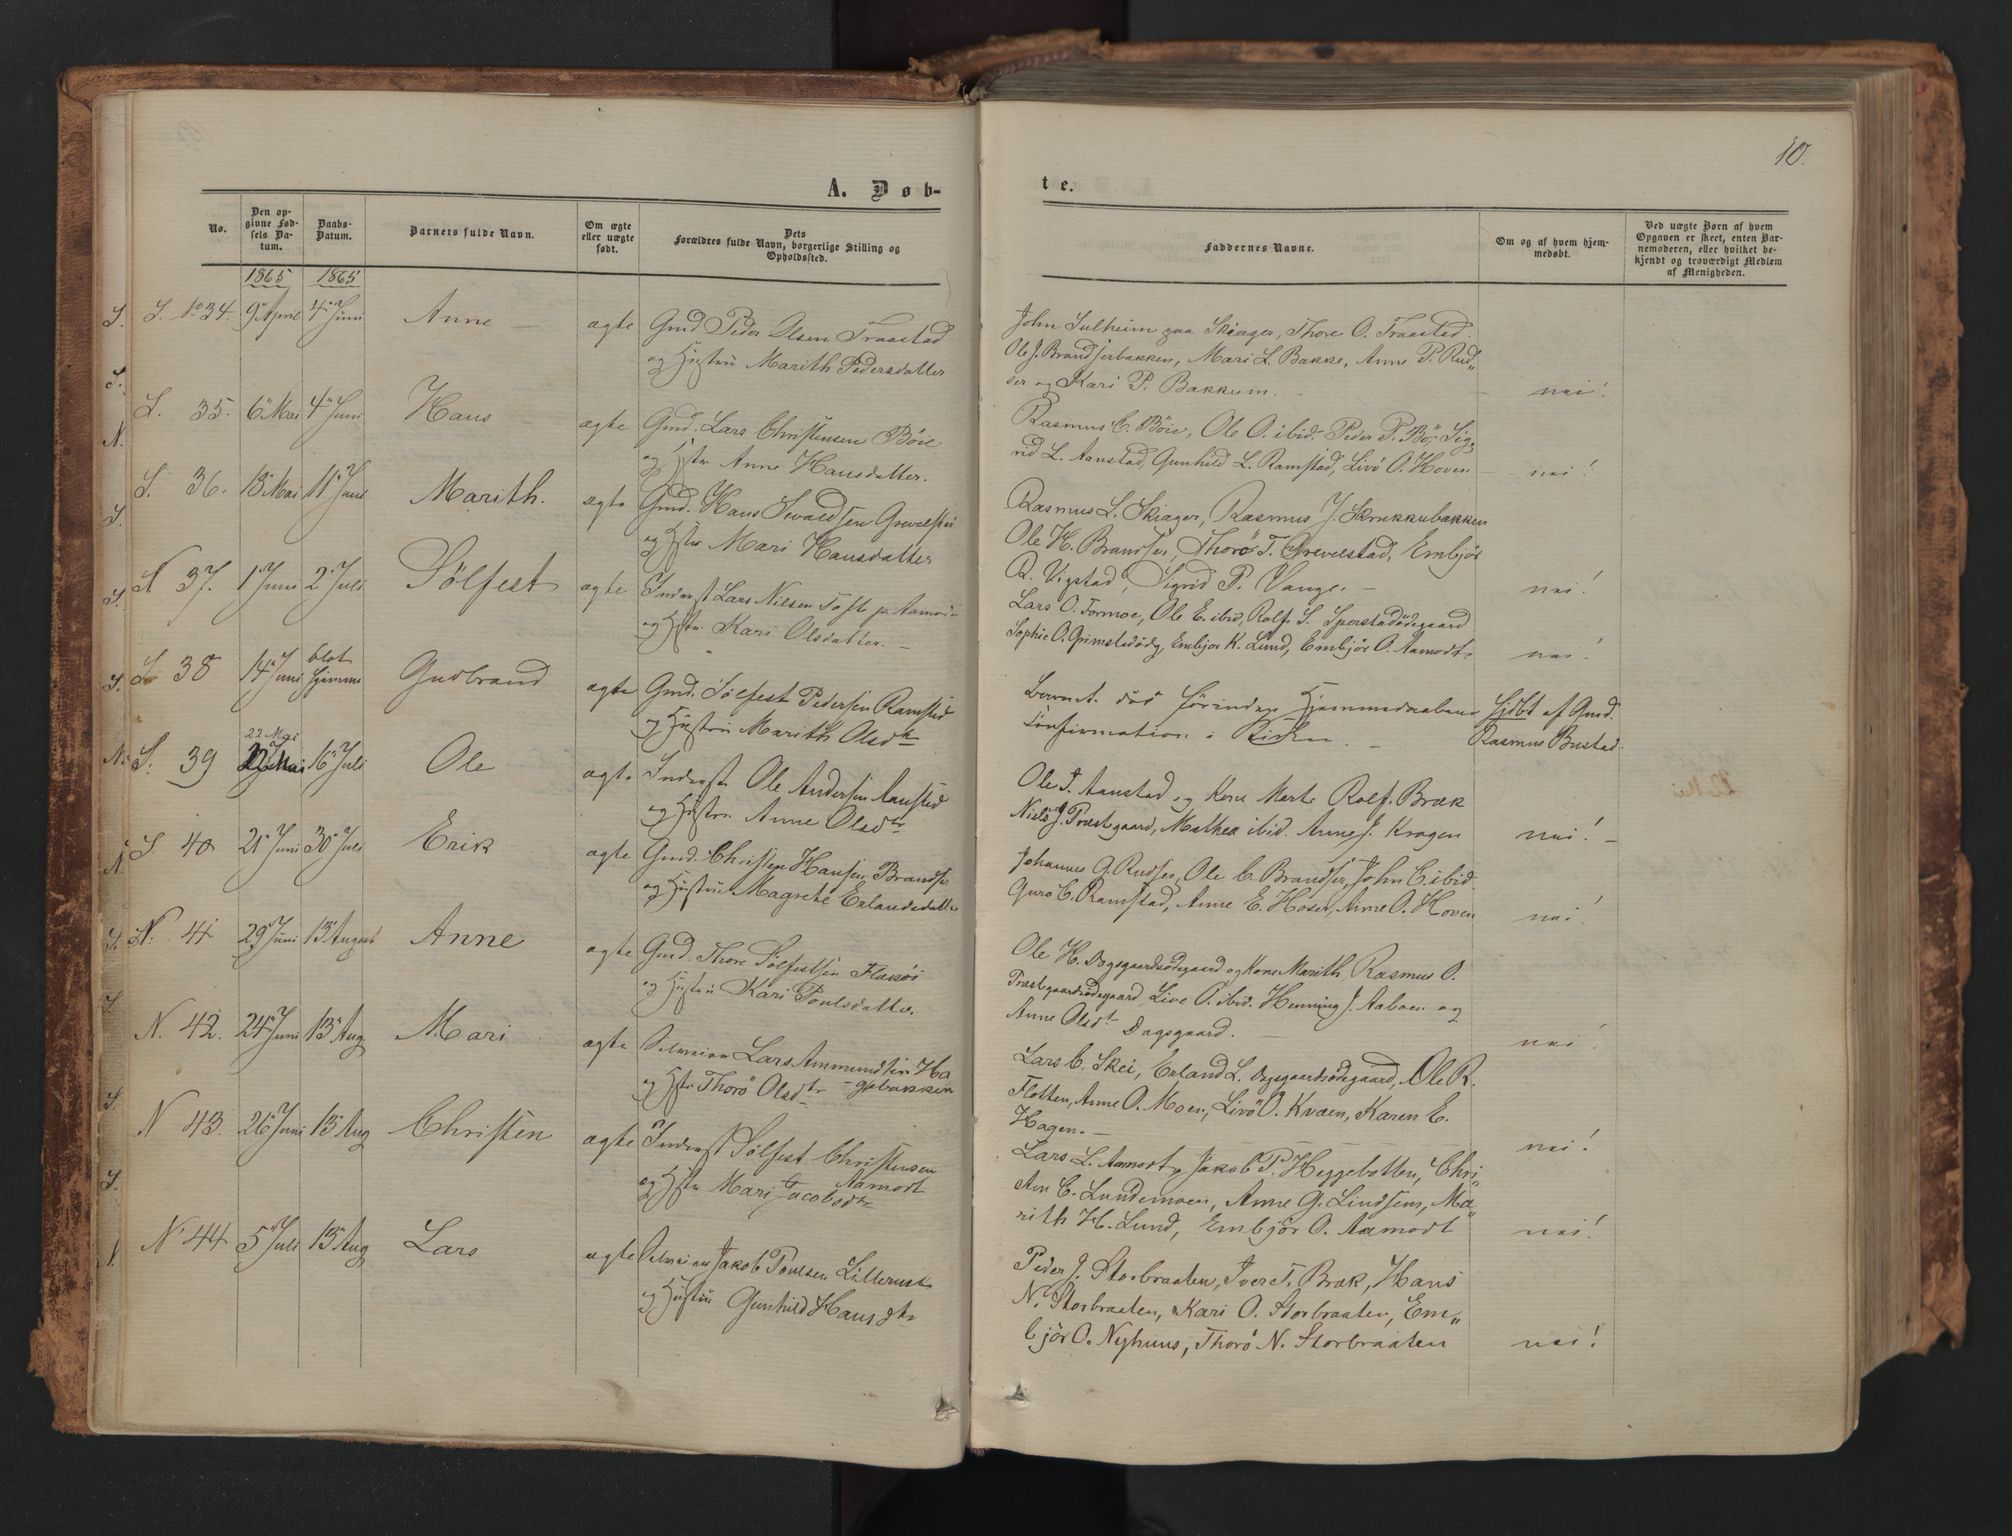 10.
A. Døb-
te.
No.
Den op-
givne Fød-
sels Da-
tum.
Daabs-
Datum.
Barnets fulde Navn.
Om ægte
eller uægte
født.
Dets
Forældres fulde Navn, borgerlige Stilling og
Opholdssted.
Faddernes Navne.
Om og af hvem hjem-
medøbt.
Ved uægte Børn af hvem
Opgaven er skeet, enten Bar-
nemoderen, eller hvilket be-
kjendt og troværdigt Medlem
af Menigheden.
1865 1865
S. No 34. 9 April 4 Juni Anne ægte Gmd Peder Olsen Fraastad
og Hustru Marith Pedersdatter
John Sulheim paa Skiager, Thore O. Fraastad
Ole J. Brandserbakken, Mari L. Bakke, Anne P. Rud„
ser og Kari P. Bakkum. nei!
S. 35. 6 Mai 4 Juni Hans ægte Gmd. Lars Christensen Bøie
og Hstr Anne Hansdatter.
Rasmus C. Bøie, Ole O. ibid. Peder P. Bø, Sig„
rid L. Aanstad, Gunhild L. Ramstad, Livø O. Hoven nei!
S. 36. 18 Mai 11 Juni Marith. ægte Gmd. Hans Iwaldsen Grevelstad
og Hstr Mari Hansdatter
Rasmus L. Skiager, Rasmus J. Skrukkubakken
Ole H. Brandser, Thorø T. Grevelstad, Embjør
R. Vigstad, Sigrid P. Vange. nei!
N 37. 1 Juni 2 Juli Sølfest ægte Inderst Lars Nilsen Tofte p. Aamo
og Hstr. Kari Olsdatter.
Lars O. Formoe, Ole E. ibid, Rolf S. Sperstadødegaard
Sophie O. Grimstadødg, Embjør K. Lund, Embjør O. Aamodt nei!
S. 38 14 Juni blot
hjemme Gudbrand ægte Gmd. Sølfest Pedersen Ramstad
og Hustru Marith Olsdtr
Barnet død førinden Hjemmedaabens
Confirmation i Kirken. Hjdbt af Gmd.
Rasmus Bustad.
22 Mai
S. 39 22 Mai 16 Juli Ole ægte Inderst Ole Andersen Aanstad
og Hustru Anne Olsdtr
Ole T. Aanstad og Kone Marte Rolf. Bræk
Niels J. Præstgaard, Mathea ibid. Anne J. Kragen nei!
S. 40 21 Juni 30 Juli Erik ægte Gmd. Christen Hansen Brandser
og Hustru Magrete Erlandsdatter
Johannes G. Rudser, Ole C. Brandser, John C. ibid.
Guro C. Ramstad, Anne E. Hoser, Anne O. Hoven nei!
N. 41 29 Juni 13 August Anne ægte Gmd. Thore Sølfestsen Flækøi
og Hustru Kari Poulsdatter.
Ole H. Dagsgaardsødegaard og Kone Marith. Rasmus O.
Præstgaardsødegaard, Live O. ibid. Henning J. Aaboen og
Anne Olsdtr Dagsgaard. nei!
N. 42. 24 Juni 13 Aug Mari ægte Selveier Lars Ammundsen Ha
og Hstr Thorø Olsdtr - gebakken
Lars C. Skei, Erland L. Dagsgaardsødegaard, Ole R.
Flotten, Anne O. Moen, Livø O. Kvæn, Karen E.
Hagen. nei!
N 43. 26 Juni 13 Aug Christen ægte Inderst Sølfest Christensen
Aamodt
og Hstr Mari Jacobsdtr
Lars L. Aamodt, Jakob P. Heggebotten, Chri„
sten C. Lundemoen, Anne G. Lindsem, Ma„
rith H. Lund, Embjør O. Aamodt nei!
N. 44 5 Juli 13 Aug Lars ægte Selveier Jakob Poulsen Lillerust
og Hustru Gunhild Hansdtr
Peder J. Storbraaten, Iver T. Bræk, Hans
N. Storbraaten, Kari O. Storbraaten, Em„
bjør O. Nyhuus, Thorø N. Storbraaten nei!